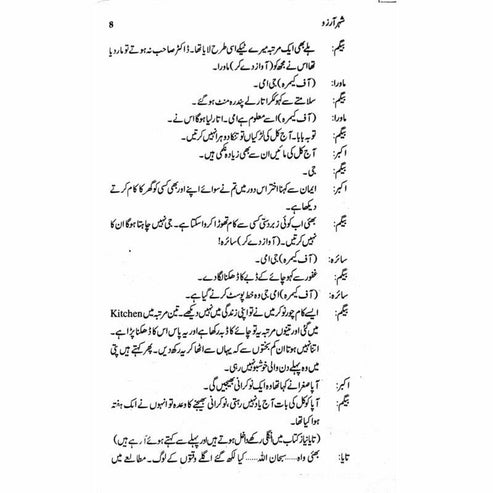 شہرِ آرزو 8
بیگم: ہلے بھی ایک مرتبہ میرے ٹیکے اسی طرح لایا تھا۔ ڈاکٹر صاحب نہ ہوتے تو مار دیا
تھا اس نے مجھ کو (آواز دے کر) ماورا۔
ماورا: (آف کیمرہ) جی امی۔
بیگم: سلامتے سے کہو لنگر اتار لے پندرہ منٹ ہو گئے۔
ماورا: (آف کیمرہ) اسے معلوم ہے امی۔ اتار لیا ہوگا اس نے۔
بیگم: توبہ بابا۔ آج کل کی لڑکیاں تو تنکا دوہرا نہیں کرتیں۔
اکبر: آج کل کی مائیں ان سے بھی زیادہ نکمی ہیں۔
بیگم: جی۔
اکبر: ایمان سے کہنا اختر اس دور میں تم نے سوائے اپنے اور بھی کسی کو گھر کا کام کرتے
دیکھا ہے۔
بیگم: بھئی اب کوئی زبردستی کسی سے کام تھوڑا کروا سکتا ہے۔ جی نہیں چاہتا ہوگا ان کا
نہیں کرتیں۔ (آواز دے کر) سائرہ!
سائرہ: (آف کیمرہ) جی امی۔
بیگم: غفور سے کہو چائے کے ڈبے کا ڈھکنا لگا دے۔
سائرہ: (آف کیمرہ) امی جی وہ خط پوسٹ کرنے گیا ہے۔
بیگم: ایسے کام چور نوکر میں نے تو اپنی زندگی میں نہیں دیکھے۔ تین مرتبہ میں Kitchen
میں گئی اور تینوں مرتبہ یہ تو چائے کا ڈبہ رکھا ہے اور یہ پاس اس کا ڈھکنا پڑا ہے۔
اتنا نہیں ہوتا ان کم بختوں سے کہ یہاں سے اٹھا کر یہ رکھ دیں۔ پھر کہتے ہیں پتی
میں وہ پہلے دن والی خوشبو نہیں رہی۔
اکبر: آپا صغرا نے کہا تھا وہ ایک نوکرانی بھیجیں گی۔
بیگم: آپا کو کل کی بات آج یاد نہیں رہتی، نوکرانی بھیجنے کا وعدہ تو انہوں نے ایک ہفتہ
ہوا کیا تھا۔
(تایا نیاز کتاب میں انگلی رکھے داخل ہوتے ہیں اور پہلے سے کہتے ہوئے آ رہے ہیں)
تایا: بھئی واہ ..... سبحان اللہ ..... کیا لکھ گئے اگلے وقتوں کے لوگ۔ مطالعے میں